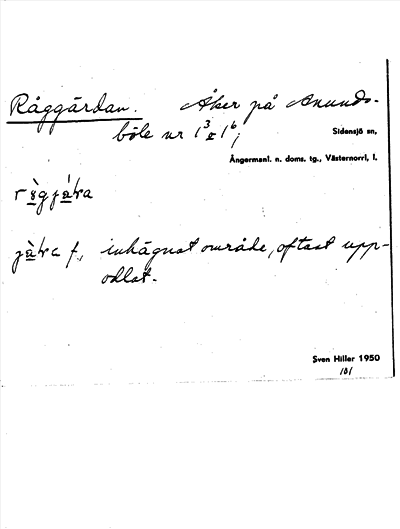 Råggärdan. Åker på Anunds-
böle nr 1³ & 1⁶;
Sidensjö sn,
Ångermanl. n. doms. tg., Västernorrl. l.
jàra f., inhägnat område, oftast upp-
odlat.
Sven Hiller 1950
181